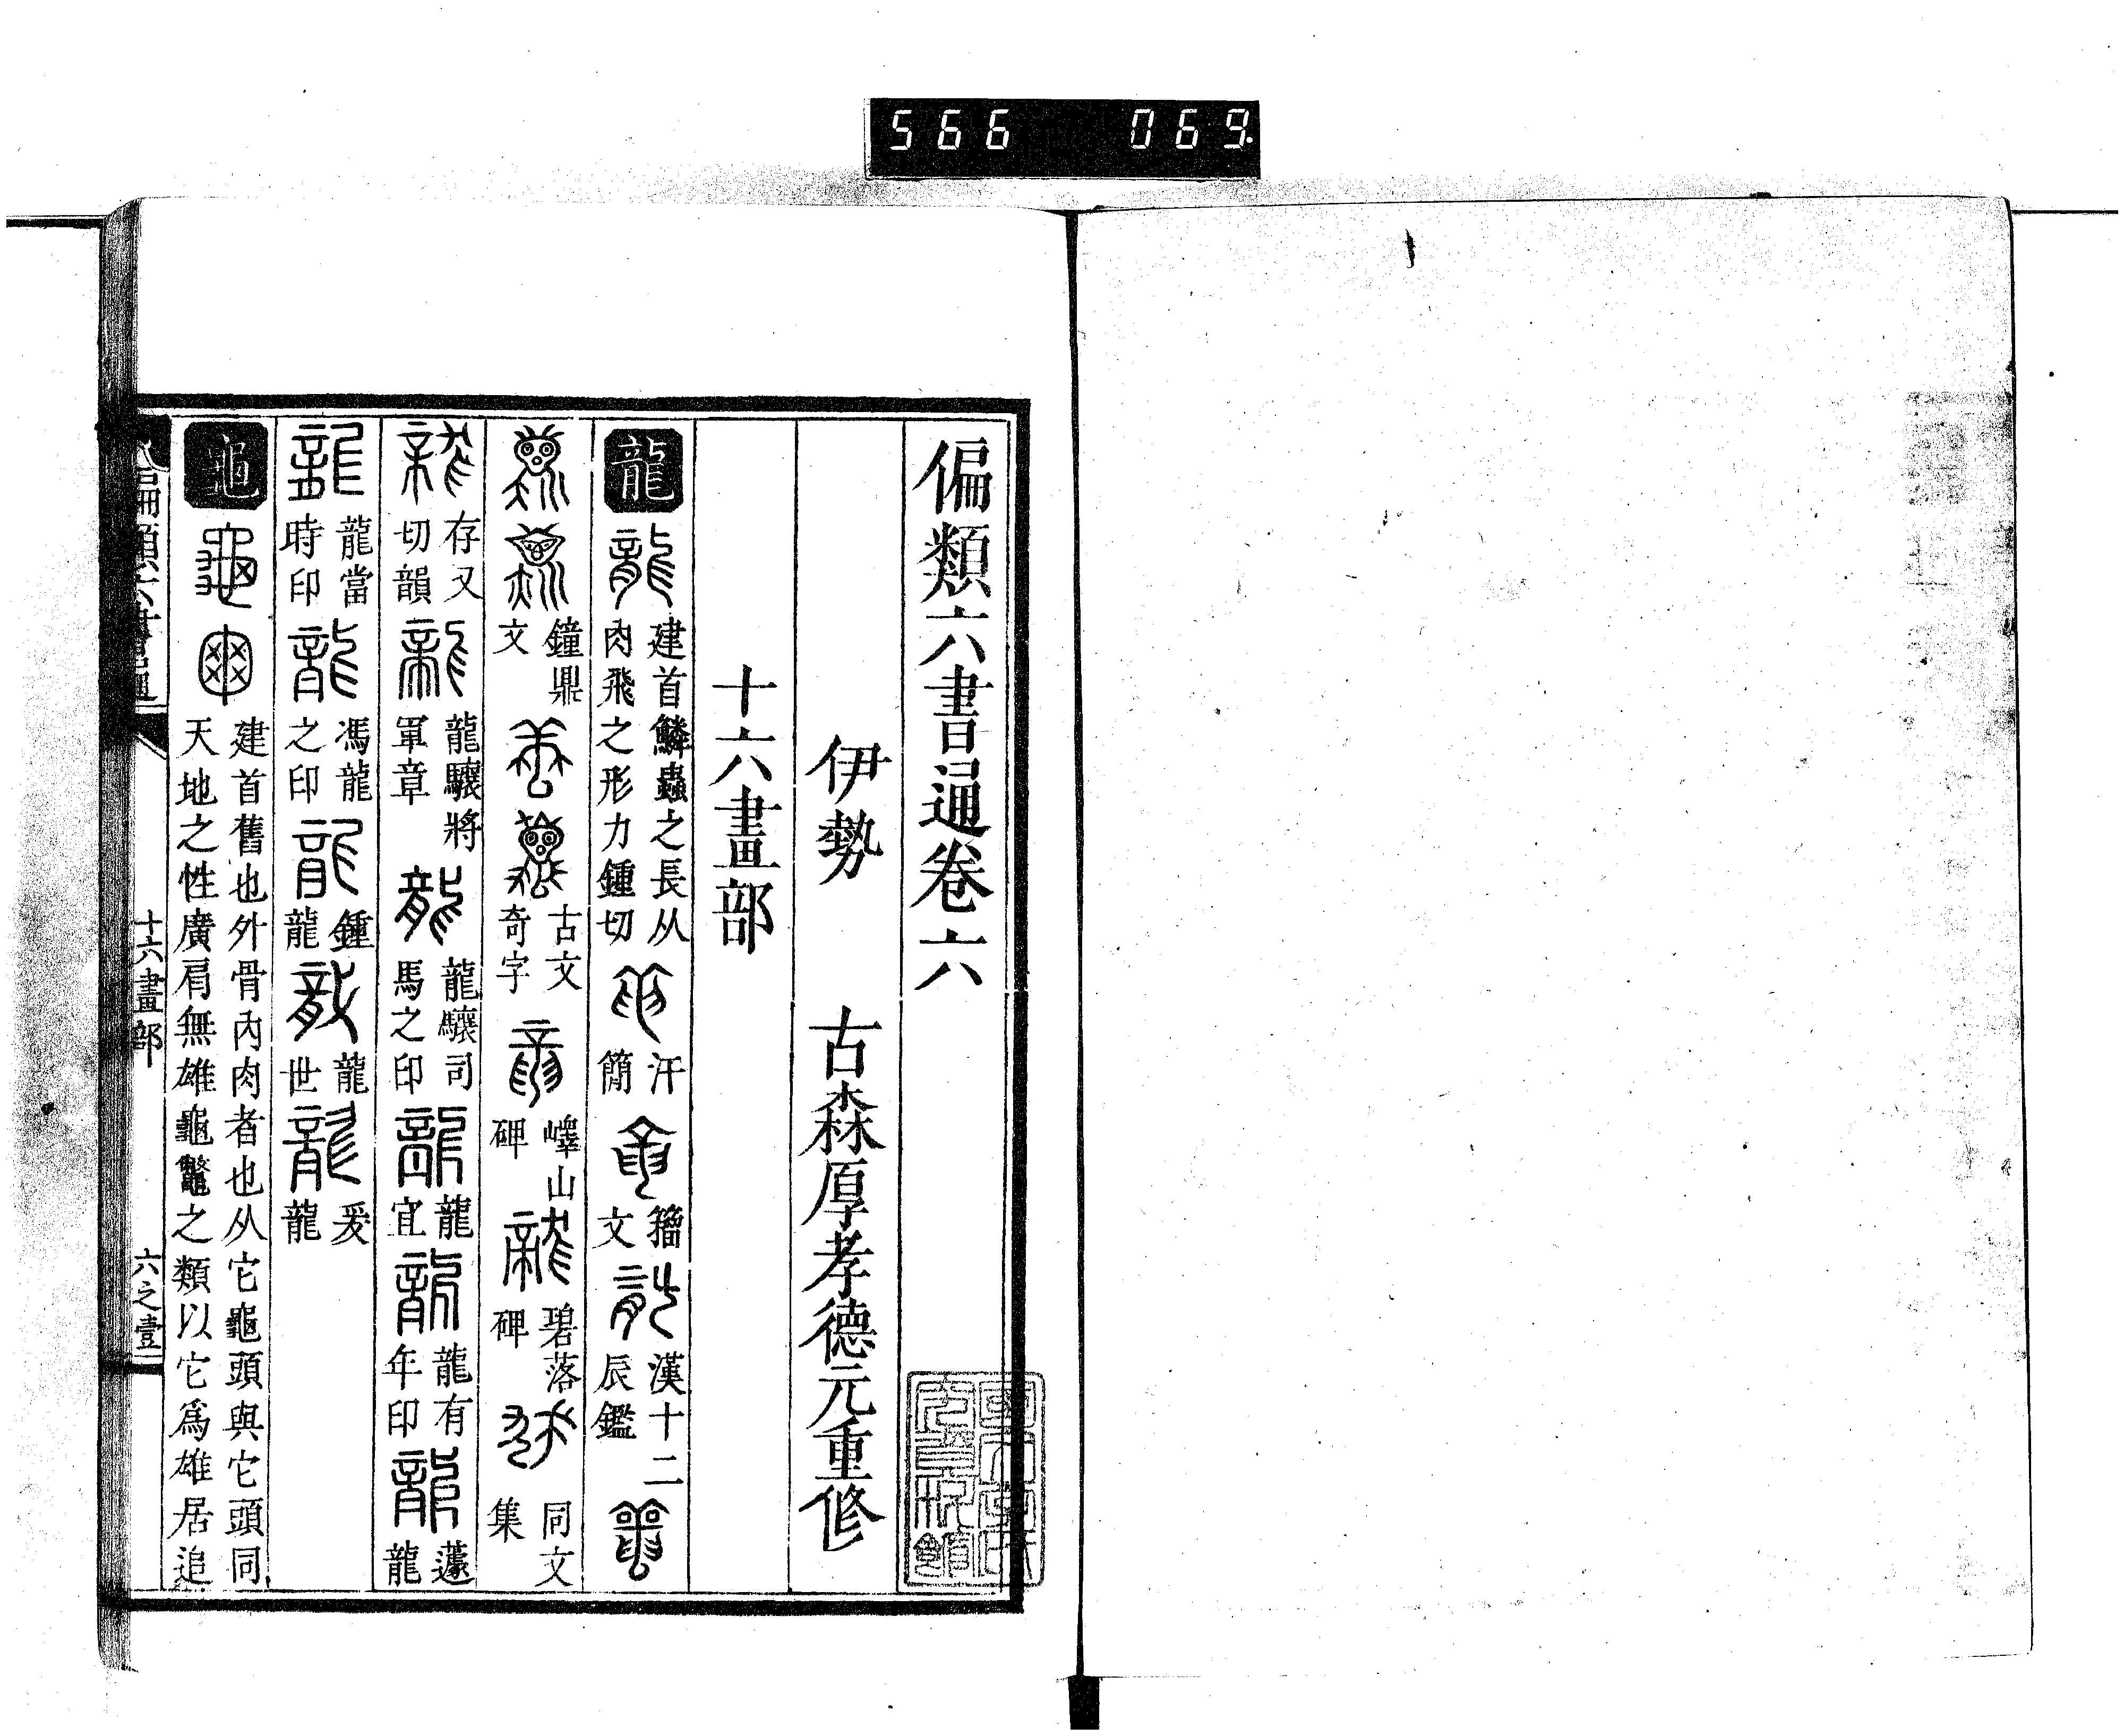 566 069
偏類六書通卷六
伊勢 古森厚孝德元重修
十六畫部
龍 龍 建首鱗蟲之長从肉飛之形力鍾切 汗簡 籀文 漢十二辰鑑
鐘鼎文 古文奇字 嶧山碑 碧落碑 同文集
存乂切韻 龍驤將軍章 龍驤司馬之印 龍宜 龍有年印 蘧龍
龍當時印 馮龍之印 鍾龍 龍世 爰龍
龜 建首舊也外骨內肉者也从它龜頭與它頭同天地之性廣肩無雄龜鼈之類以它爲雄居追
偏類六書通
十六畫部
六之壹